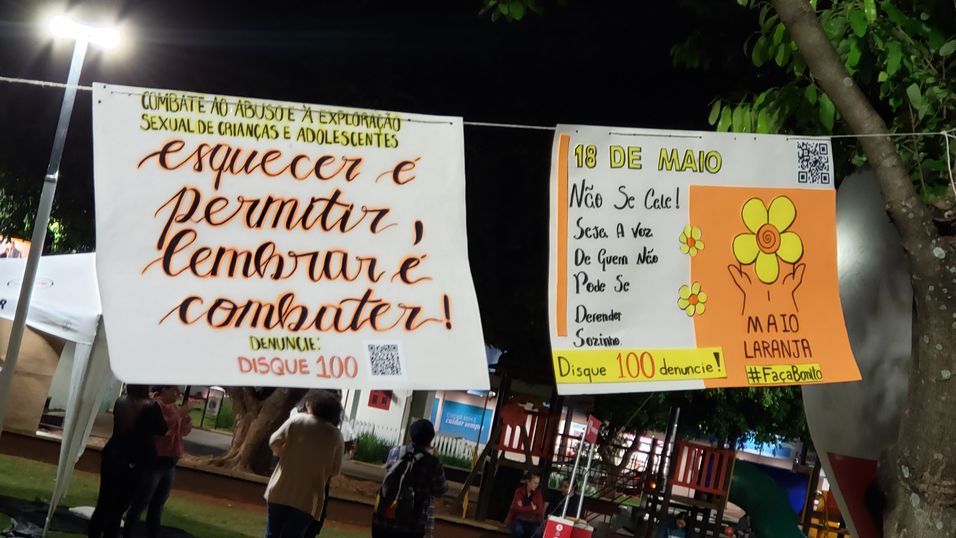 COMBATE AO ABUSO E À EXPLORAÇÃO
SEXUAL DE CRIANÇAS E ADOLESCENTES
esquecer é
permitir,
lembrar é
combater!
DENUNCIE:
DISQUE 100
18 DE MAIO
Não Se Cale!
Seja A Voz
De Quem Não
Pode Se
Defender
Sozinho.
Disque 100 denuncie!
MAIO
LARANJA
#FaçaBonito